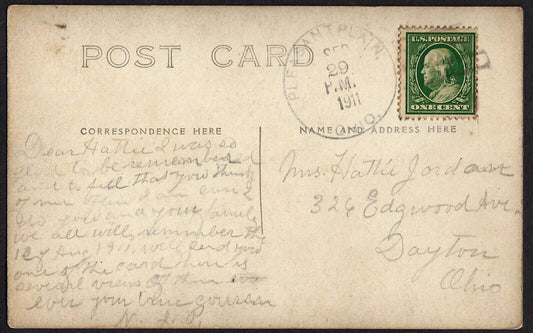 POST CARD
PLEASANT PLAIN,
SEP
29
P.M.
1911
OHIO.
U.S. POSTAGE
ONE CENT
CORRESPONDENCE HERE
NAME AND ADDRESS HERE
Dear Hattie I was so
glad to be remembered
and to tell that you think
of me then I am sure I
do you and your family
we all will remember the
12 of Aug 1911. will send you
one of the card here is
several views of them
ever your true
N. L. P.
Mrs. Hattie Jordan
326 Edgwood Ave.
Dayton
Ohio